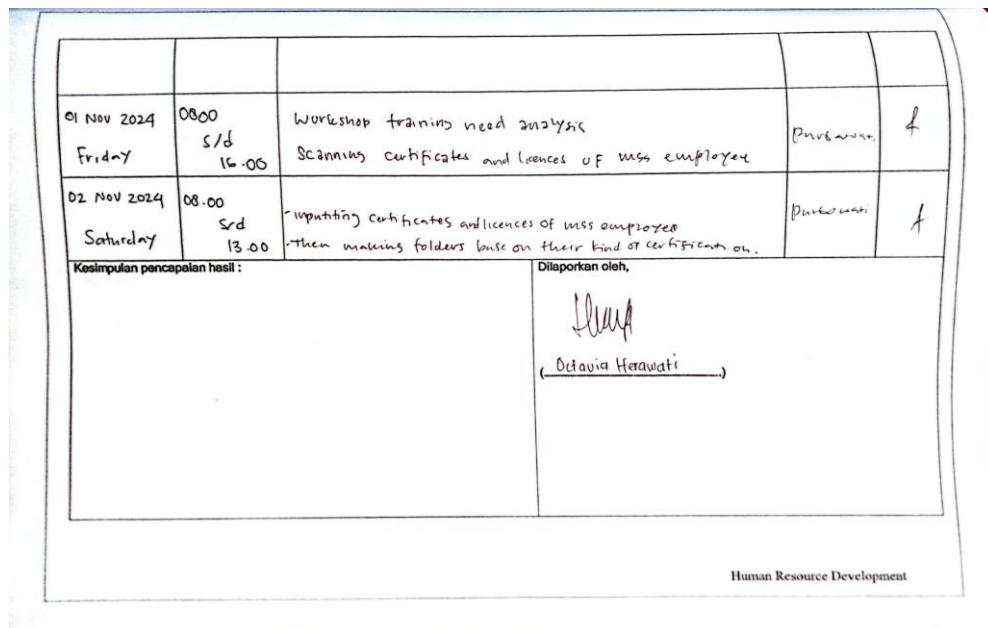 01 Nov 2024
Friday
0800
s/d
16.00
Workshop training need analysis
Scanning certificates and licences of mss employee
02 Nov 2024
Saturday
08.00
s/d
13.00
-inputting certificates and licences of mss employee
-Then making folders base on their kind of certification.
Kesimpulan pencapaian hasil :
Dilaporkan oleh,
(Octavia Herawati)
Human Resource Development